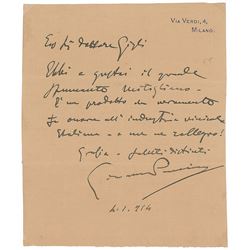 VIA VERDI, 4,
MILANO.
Dottore Gigli
Ebbi a gustare il grande
Spumante
È un prodotto che veramente
fa onore all'industria vinicola
Italiana - e me ne rallegro!
Grazie - Saluti distinti
Giacomo Puccini
4.1.914